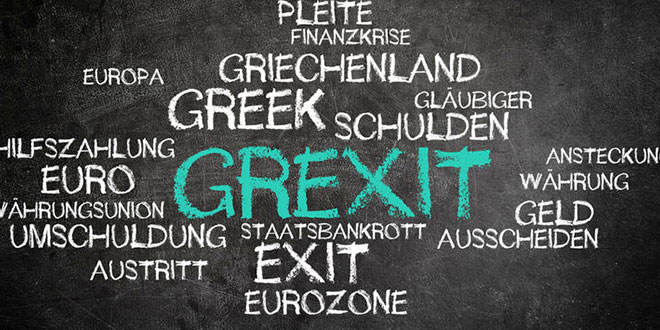 PLEITE
FINANZKRISE
GRIECHENLAND
EUROPA
GREEK
GLÄUBIGER
SCHULDEN
HILFSZAHLUNG
GREXIT
ANSTECKUN
EURO
WÄHRUNG
WÄHRUNGSUNION
GELD
UMSCHULDUNG
STAATSBANKROTT
AUSSCHEIDEN
AUSTRITT
EXIT
EUROZONE